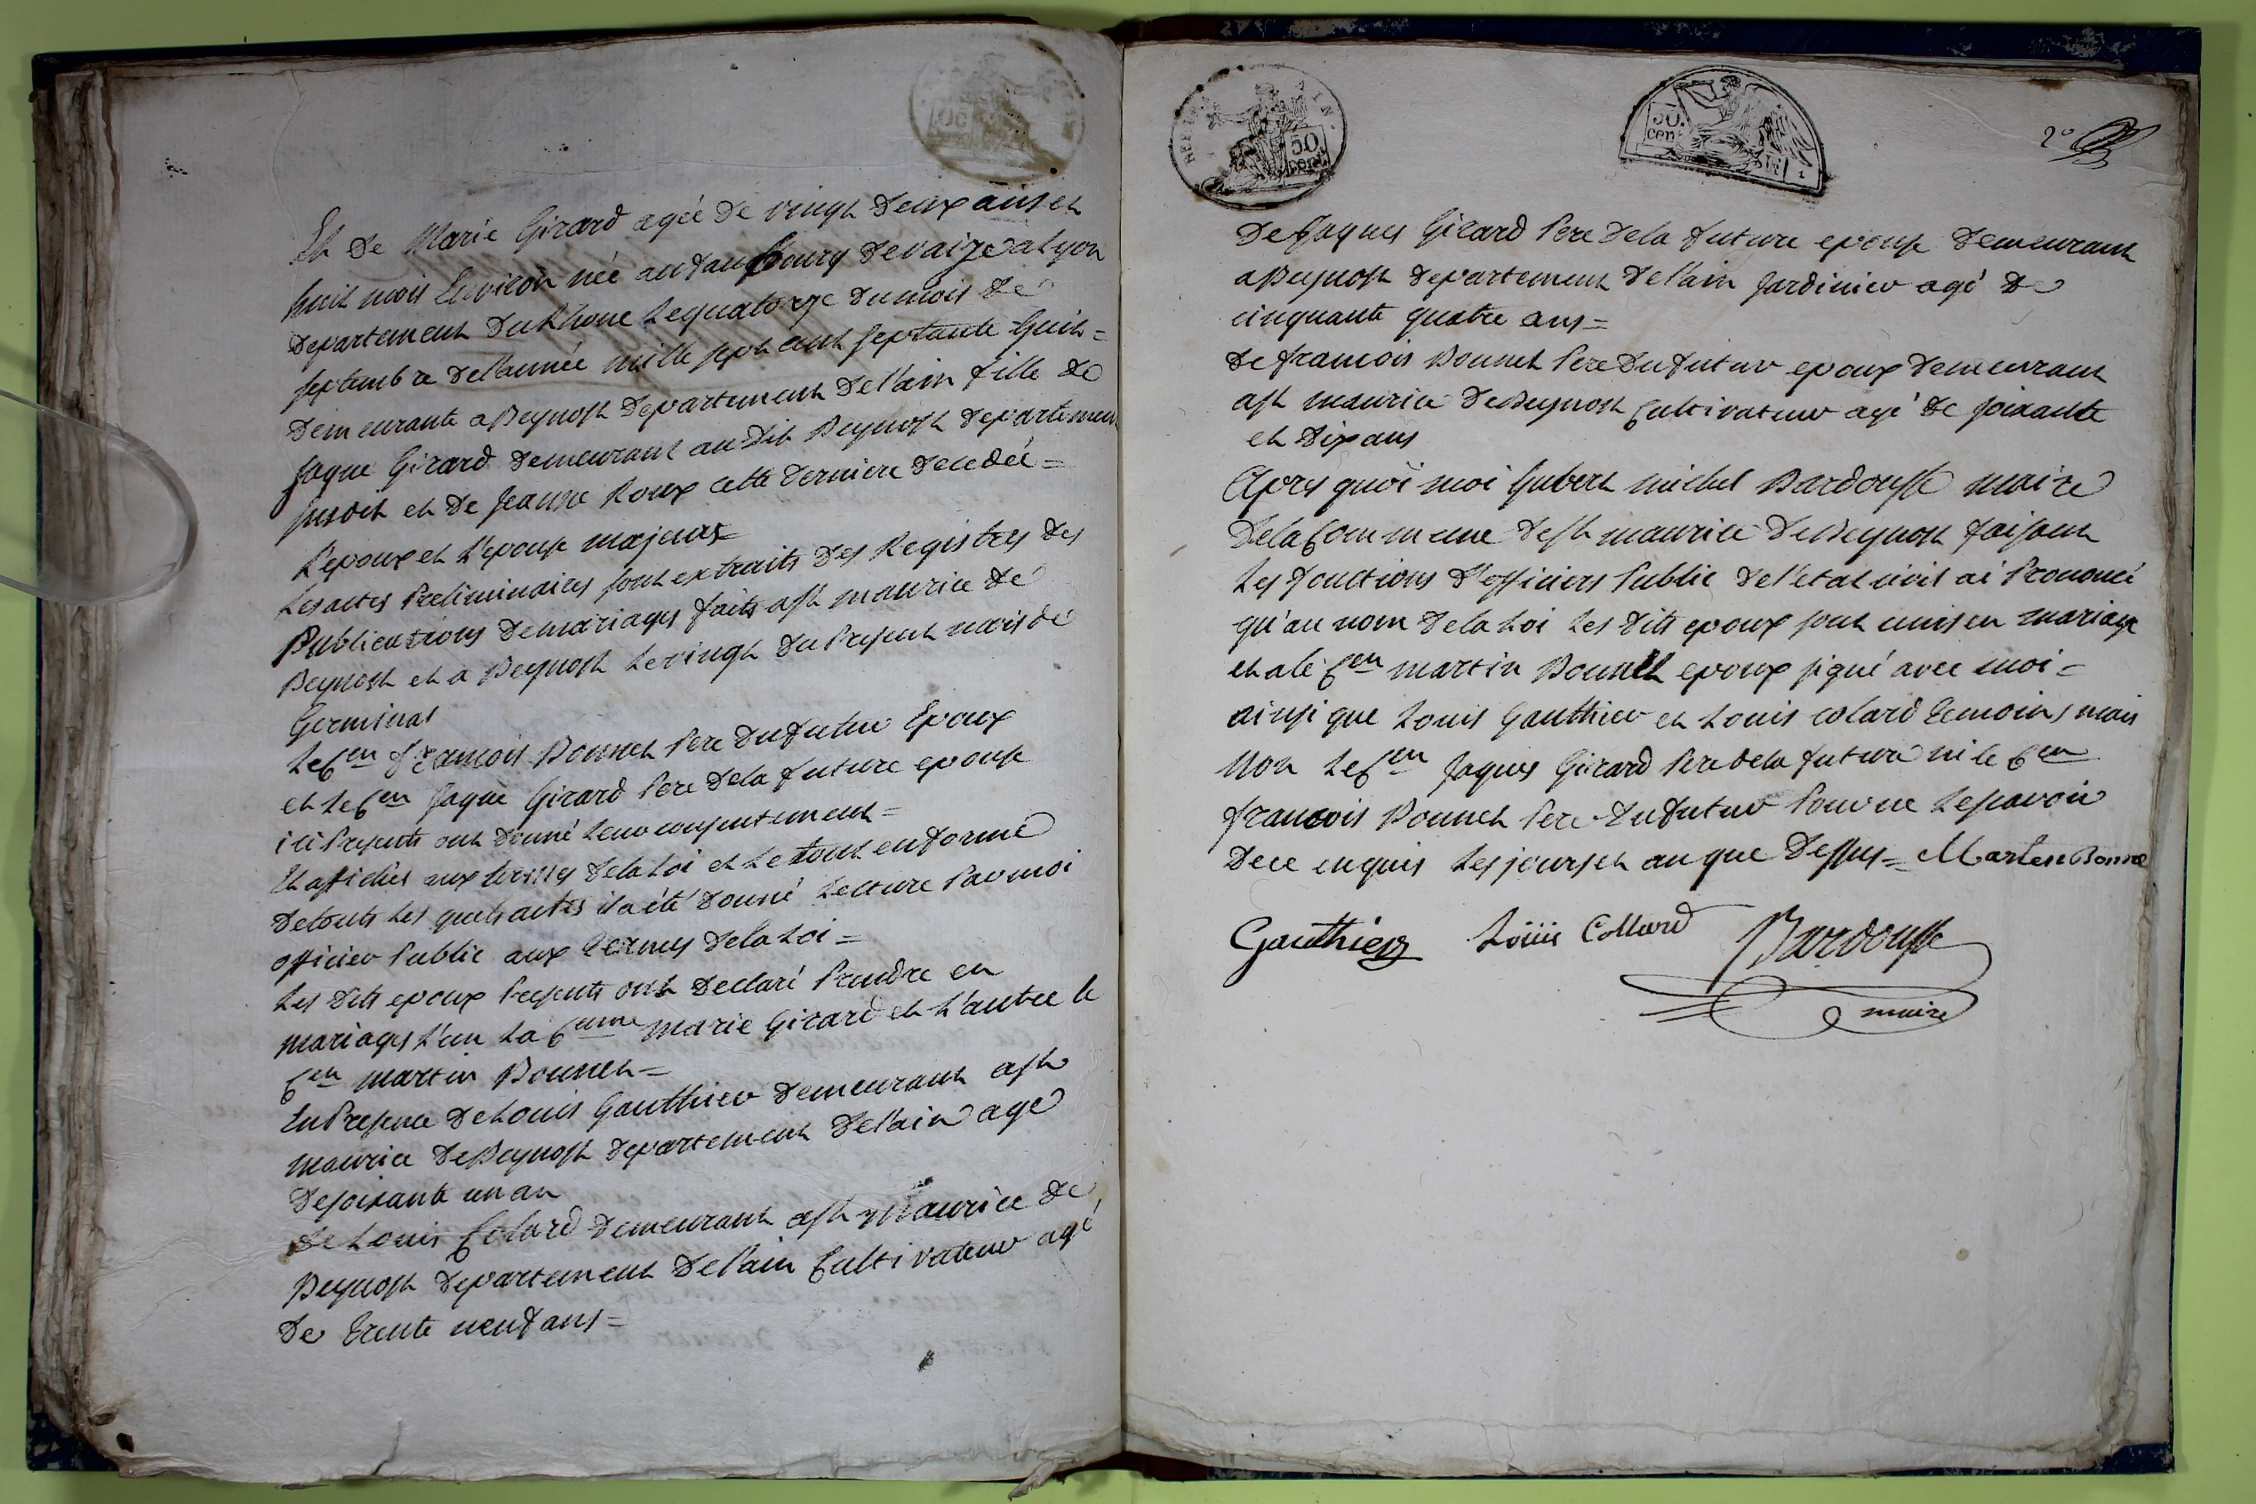 Et de Marie Girard agée de vingt deux ans et
huit mois Environ née au faubourg devaize a Lyon
departement du Rhone le quatorze du mois de
septembre de l'année mille sept cent septante huit =
demeurante a Beynost departement de l'ain fille de
Jaque Girard demeurant au dit Beynost departement
susdit et de Jeanne Roux cette derniere decedée =
L'epoux et L'epouse majeurs =
Les actes Preliminaires sont extraits des Registres des
Publications de mariages faits a st maurice de
Beynost et a Beynost le vingt du Present mois de
Germinal
Le Cen francois Bonnet Pere du futur Epoux
et le Cen Jaque Girard Pere dela future epouse
ici Presents ont donné leur consentement =
Et affichés aux termes dela Loi et le tout en forme
de touts les quels actes il a été donné Lecture Par moi
officier Public aux termes dela Loi =
Les dits epoux Presents ont declaré Prendre en
mariages L'un la Cenne Marie Girard et L'autre le
Cen martin Bonnet =
En Presence de Louis Gauthier demeurant a st
maurice de Beynost departement de l'ain age
de soixante un an
de Louis Colard demeurant a st Maurice de
Beynost departement de l'ain Cultivateur agé
de trente neuf ans =
REP. FRA. IN.
50 cent
50. cent
2e
de Jaques Girard Pere dela future epouse demeurant
a Beynost departement de l'ain Jardinier agé de
cinquante quatre ans =
de francois Bonnet Pere du futur epoux demeurant
a st maurice de Beynost Cultivateur agé de soixante
et dix ans
Apres quoi moi hubert michel Bardousse maire
dela Commune de st maurice de Beynost faisant
Les fonctions d'officiers Public de l'etat civil ai Prononcé
qu'au nom dela Loi Les dits epoux sont unis en mariage
et a le Cen martin Bonnet epoux signé avec moi =
ainsi que Louis Gauthier et Louis colard temoins mais
Non le Cen Jaques Girard Pere dela future ni le Cen
francois Bonnet Pere du futur Pour ne le savoir
de ce enquis Les jours et an que dessus = Marten Bonne
Gauthier Loüis Collard Bardousse
maire